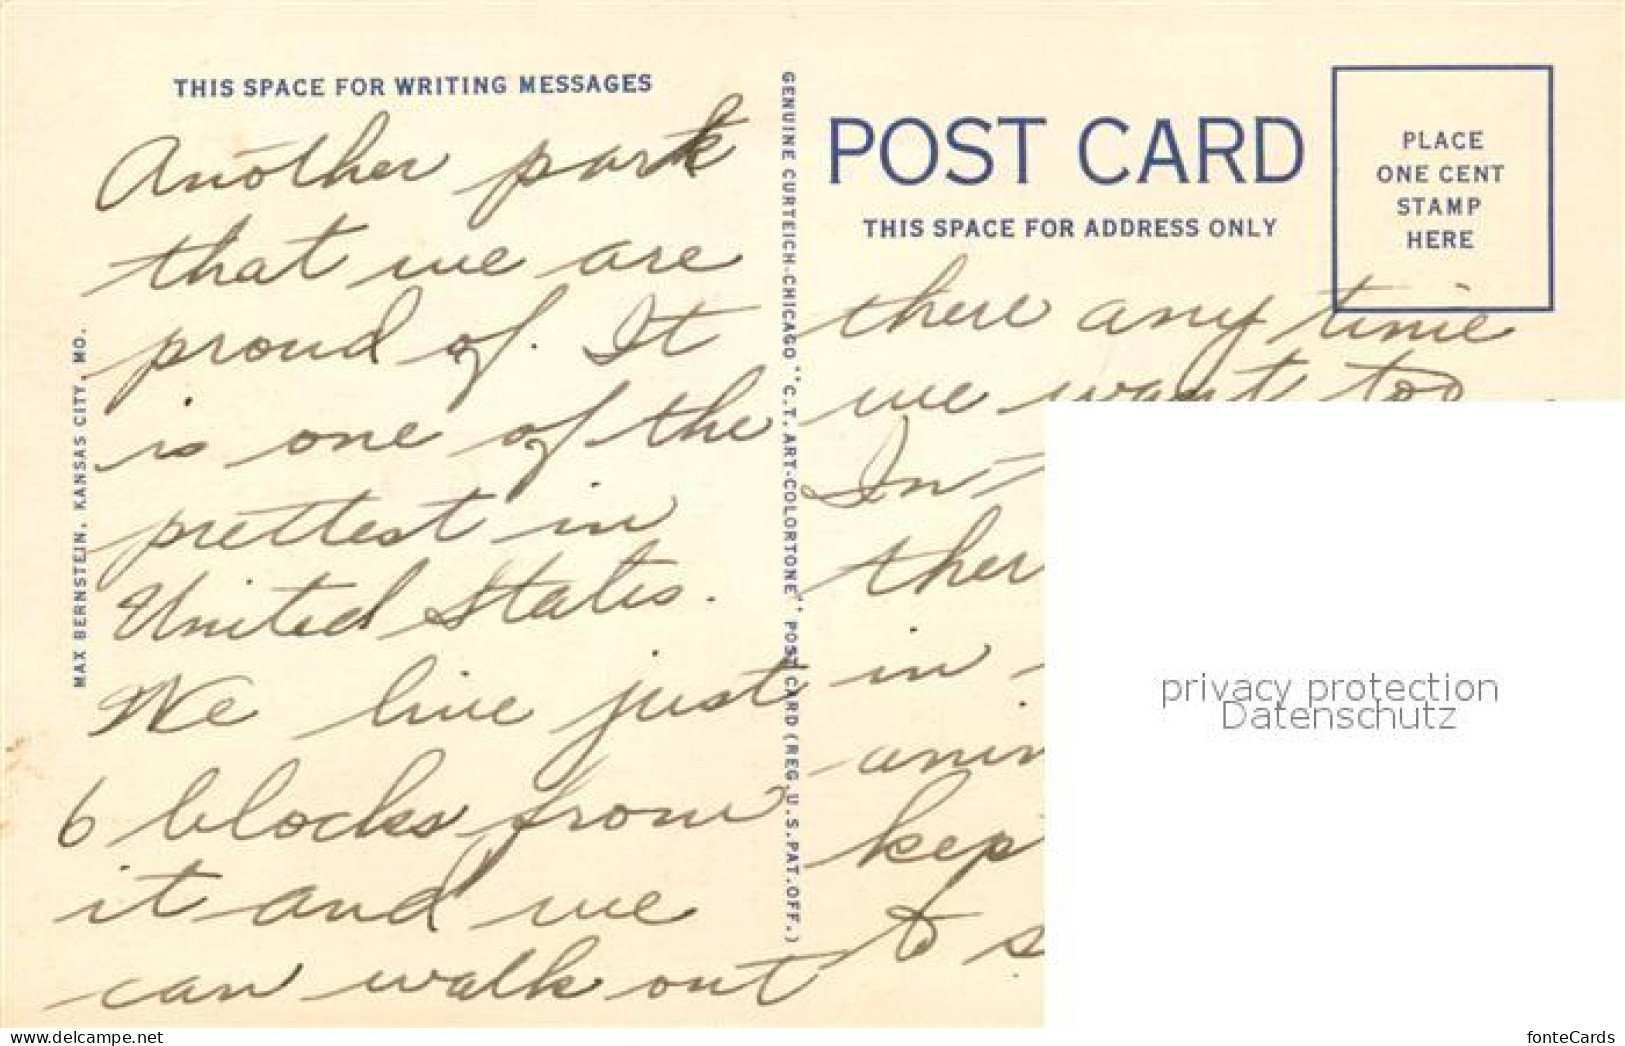 THIS SPACE FOR WRITING MESSAGES
Another park
that we are
proud of. It
is one of the
prettest in
United States.
We live just
6 blocks from
it and we
can walk out
MAX BERNSTEIN, KANSAS CITY, MO.
GENUINE CURTEICH-CHICAGO "C.T. ART-COLORTONE" POST CARD (REG. U.S. PAT. OFF.)
POST CARD
THIS SPACE FOR ADDRESS ONLY
PLACE
ONE CENT
STAMP
HERE
there any time
we want too
In
ther
in
anim
kep
to s
privacy protection
Datenschutz
www.delcampe.net
fonteCards